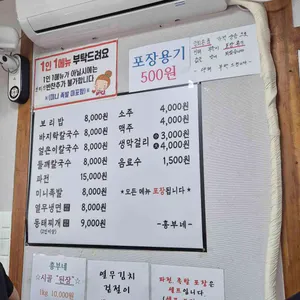 1인 1메뉴 부탁드려요
1인 1메뉴가 아닐시에는
반찬추가 불가합니다
(미니 족발 미포함)
포장용기
500원
보리밥 8,000원
바지락칼국수 8,000원
얼큰이칼국수 8,000원
들깨칼국수 8,000원
파전 15,000원
미니족발 8,000원
열무냉면 8,000원
동태찌개 9,000원
소주 4,000원
맥주 4,000원
생막걸리 3,000원
4,000원
음료수 1,500원
*모든 메뉴 포장됩니다*
-흥부네-
흥부네
☆시골 "된장"☆
1kg 10,000원
열무김치
겉절이
파전, 족발 포장은